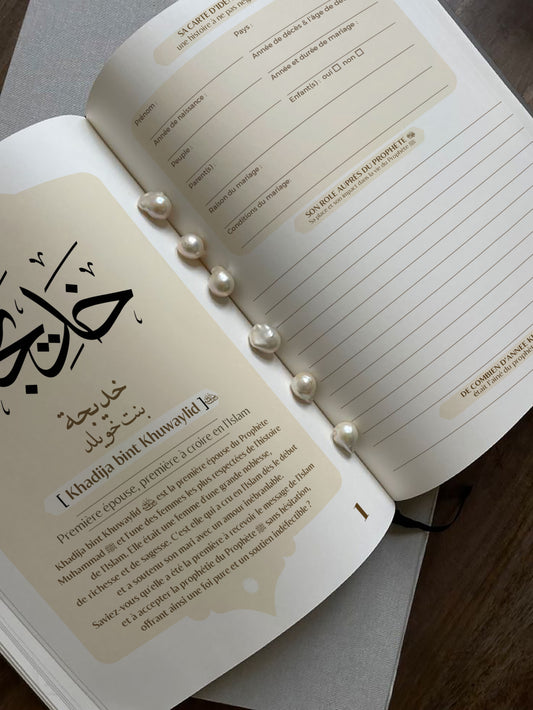 خديجة
خديجة
بنت خويلد
[ Khadija bint Khuwaylid ]
Première épouse, première à croire en l'Islam
Khadija bint Khuwaylid est la première épouse du Prophète
Muhammad ﷺ et l'une des femmes les plus respectées de l'histoire
de l'Islam. Elle était une femme d'une grande noblesse,
de richesse et de sagesse. C'est elle qui a cru en l'Islam dès le début
et a soutenu son mari avec un amour inébranlable.
Saviez-vous qu'elle a été la première à recevoir le message de l'Islam
et à accepter la prophétie du Prophète ﷺ sans hésitation,
offrant ainsi une foi pure et un soutien indéfectible ?
1
SA CARTE D'IDE
une histoire à ne pas nég
Prénom :
Pays :
Année de naissance :
Année de décès & l'âge de dé
Peuple :
Année et durée de mariage :
Parent(s) :
Enfant(s) : oui □ non □
Raison du mariage :
Conditions du mariage:
SON ROLE AUPRÈS DU PROPHÈTE ﷺ
Sa place et son impact dans la vie du Prophète ﷺ
DE COMBIEN D'ANNÉE K
était l'aîné du prophè